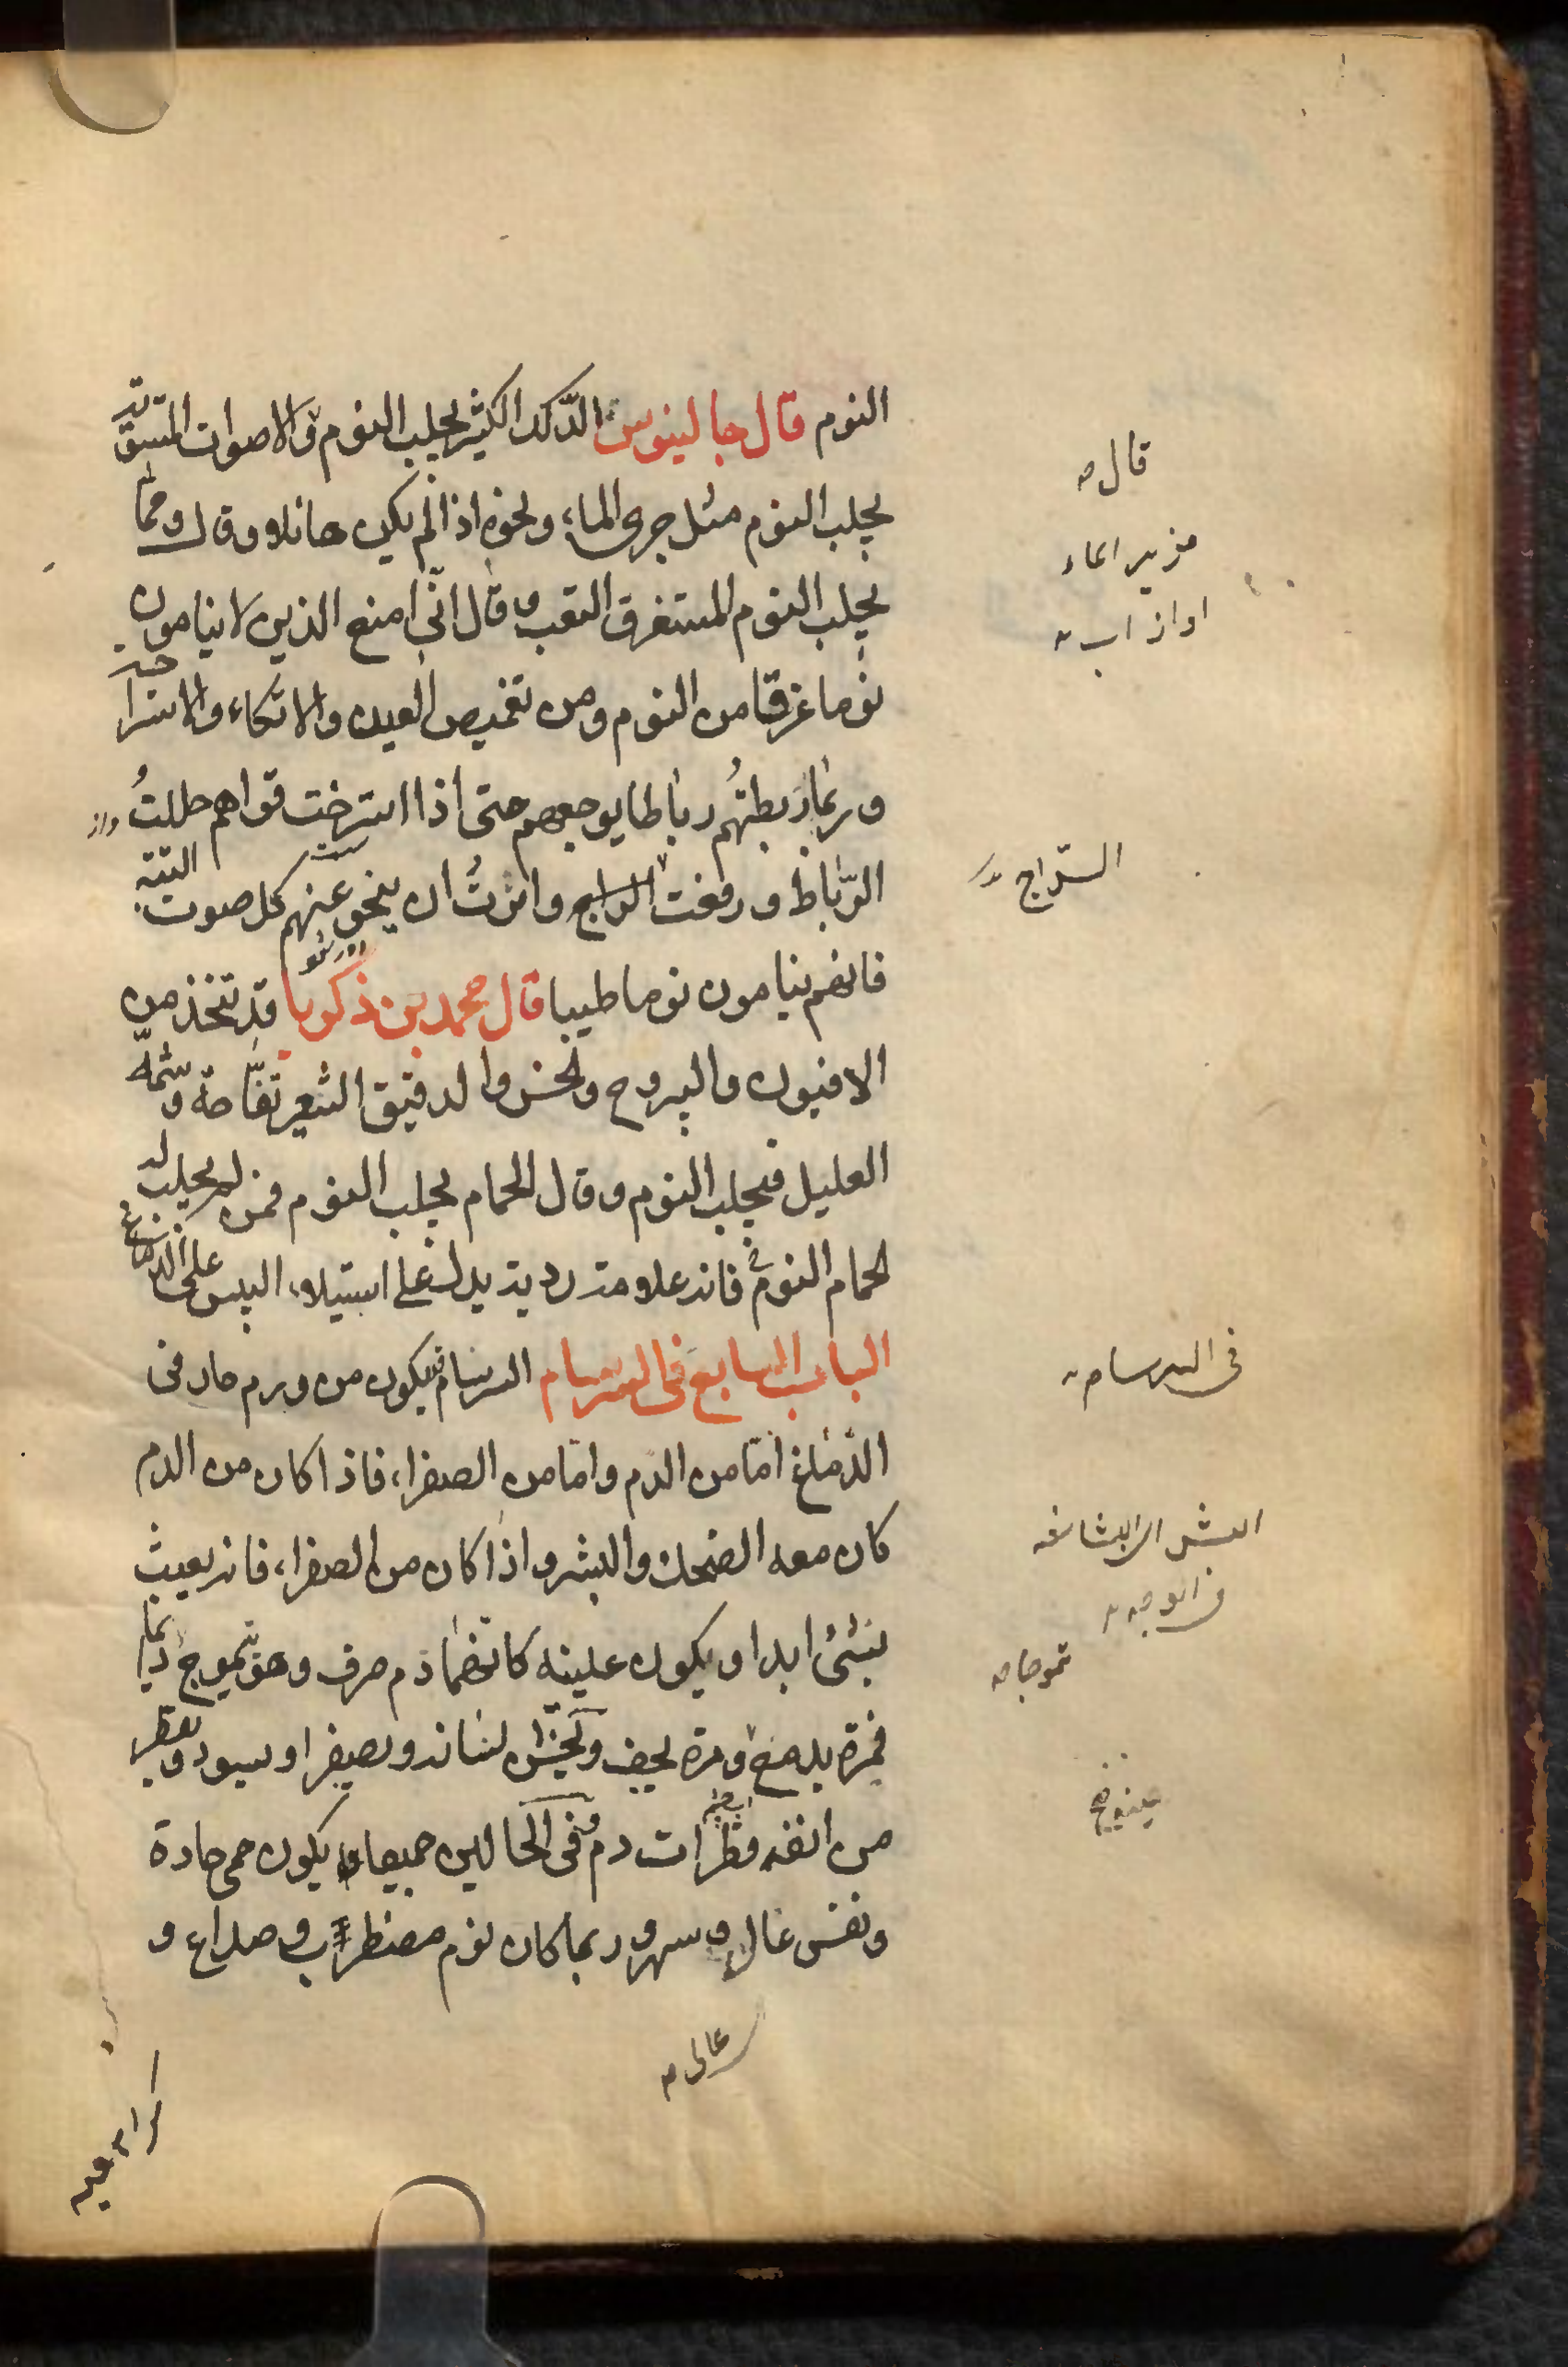 النوم قال جالينوس الدلك الكثير يجلب النوم والاصوات المتسقة
يجلب النوم مثل جرى الماء ونحوه اذا لم يكن هائلا و قال و مما
يجلب النوم المستغرق التعب و قال انى امنع الذين لا ينامون
نوما غرقا من النوم ومن تغميض العين والاتكاء والاستراحة
وربما ربطتهم رباطا يوجعهم حتى اذا استرخت قواهم حللت
الرباط ورفعت السراج وامرت ان ينحى عنهم كل صوت البتة
فانهم ينامون نوما طيبا قال محمد بن ذكريا قد تتخذ من
الافيون واليبروح والخس والدقيق الشعير تفاحة وشمه
العليل فيجلب النوم وقال الحمام يجلب النوم فمن لم يجلب له
الحمام النوم فانه علامة ردية يدل على استيلاء اليبس على الدماغ
الباب السابع فى السرسام السرسام يكون من ورم حار فى
الدماغ اما من الدم واما من الصفراء فاذا كان من الدم
كان معه الضحك والبشر واذا كان من الصفراء فانه يعبث
بشئ ابدا ويكون عينيه كانهما دم صرف وهو يتموج دايما
فمرة يدمع ومرة يجف ويخشن لسانه ويصفر او يسود ويقطر
من انفه قطرات دم وفى الحالين جميعا يكون حمى حادة
ونفس عال وسهر و ربما كان نوم مضطرب وصداع و
قال
اواز اب
السراج
فى السرسام
البشر البشاشه
فى الوجه
تموجا
عالى